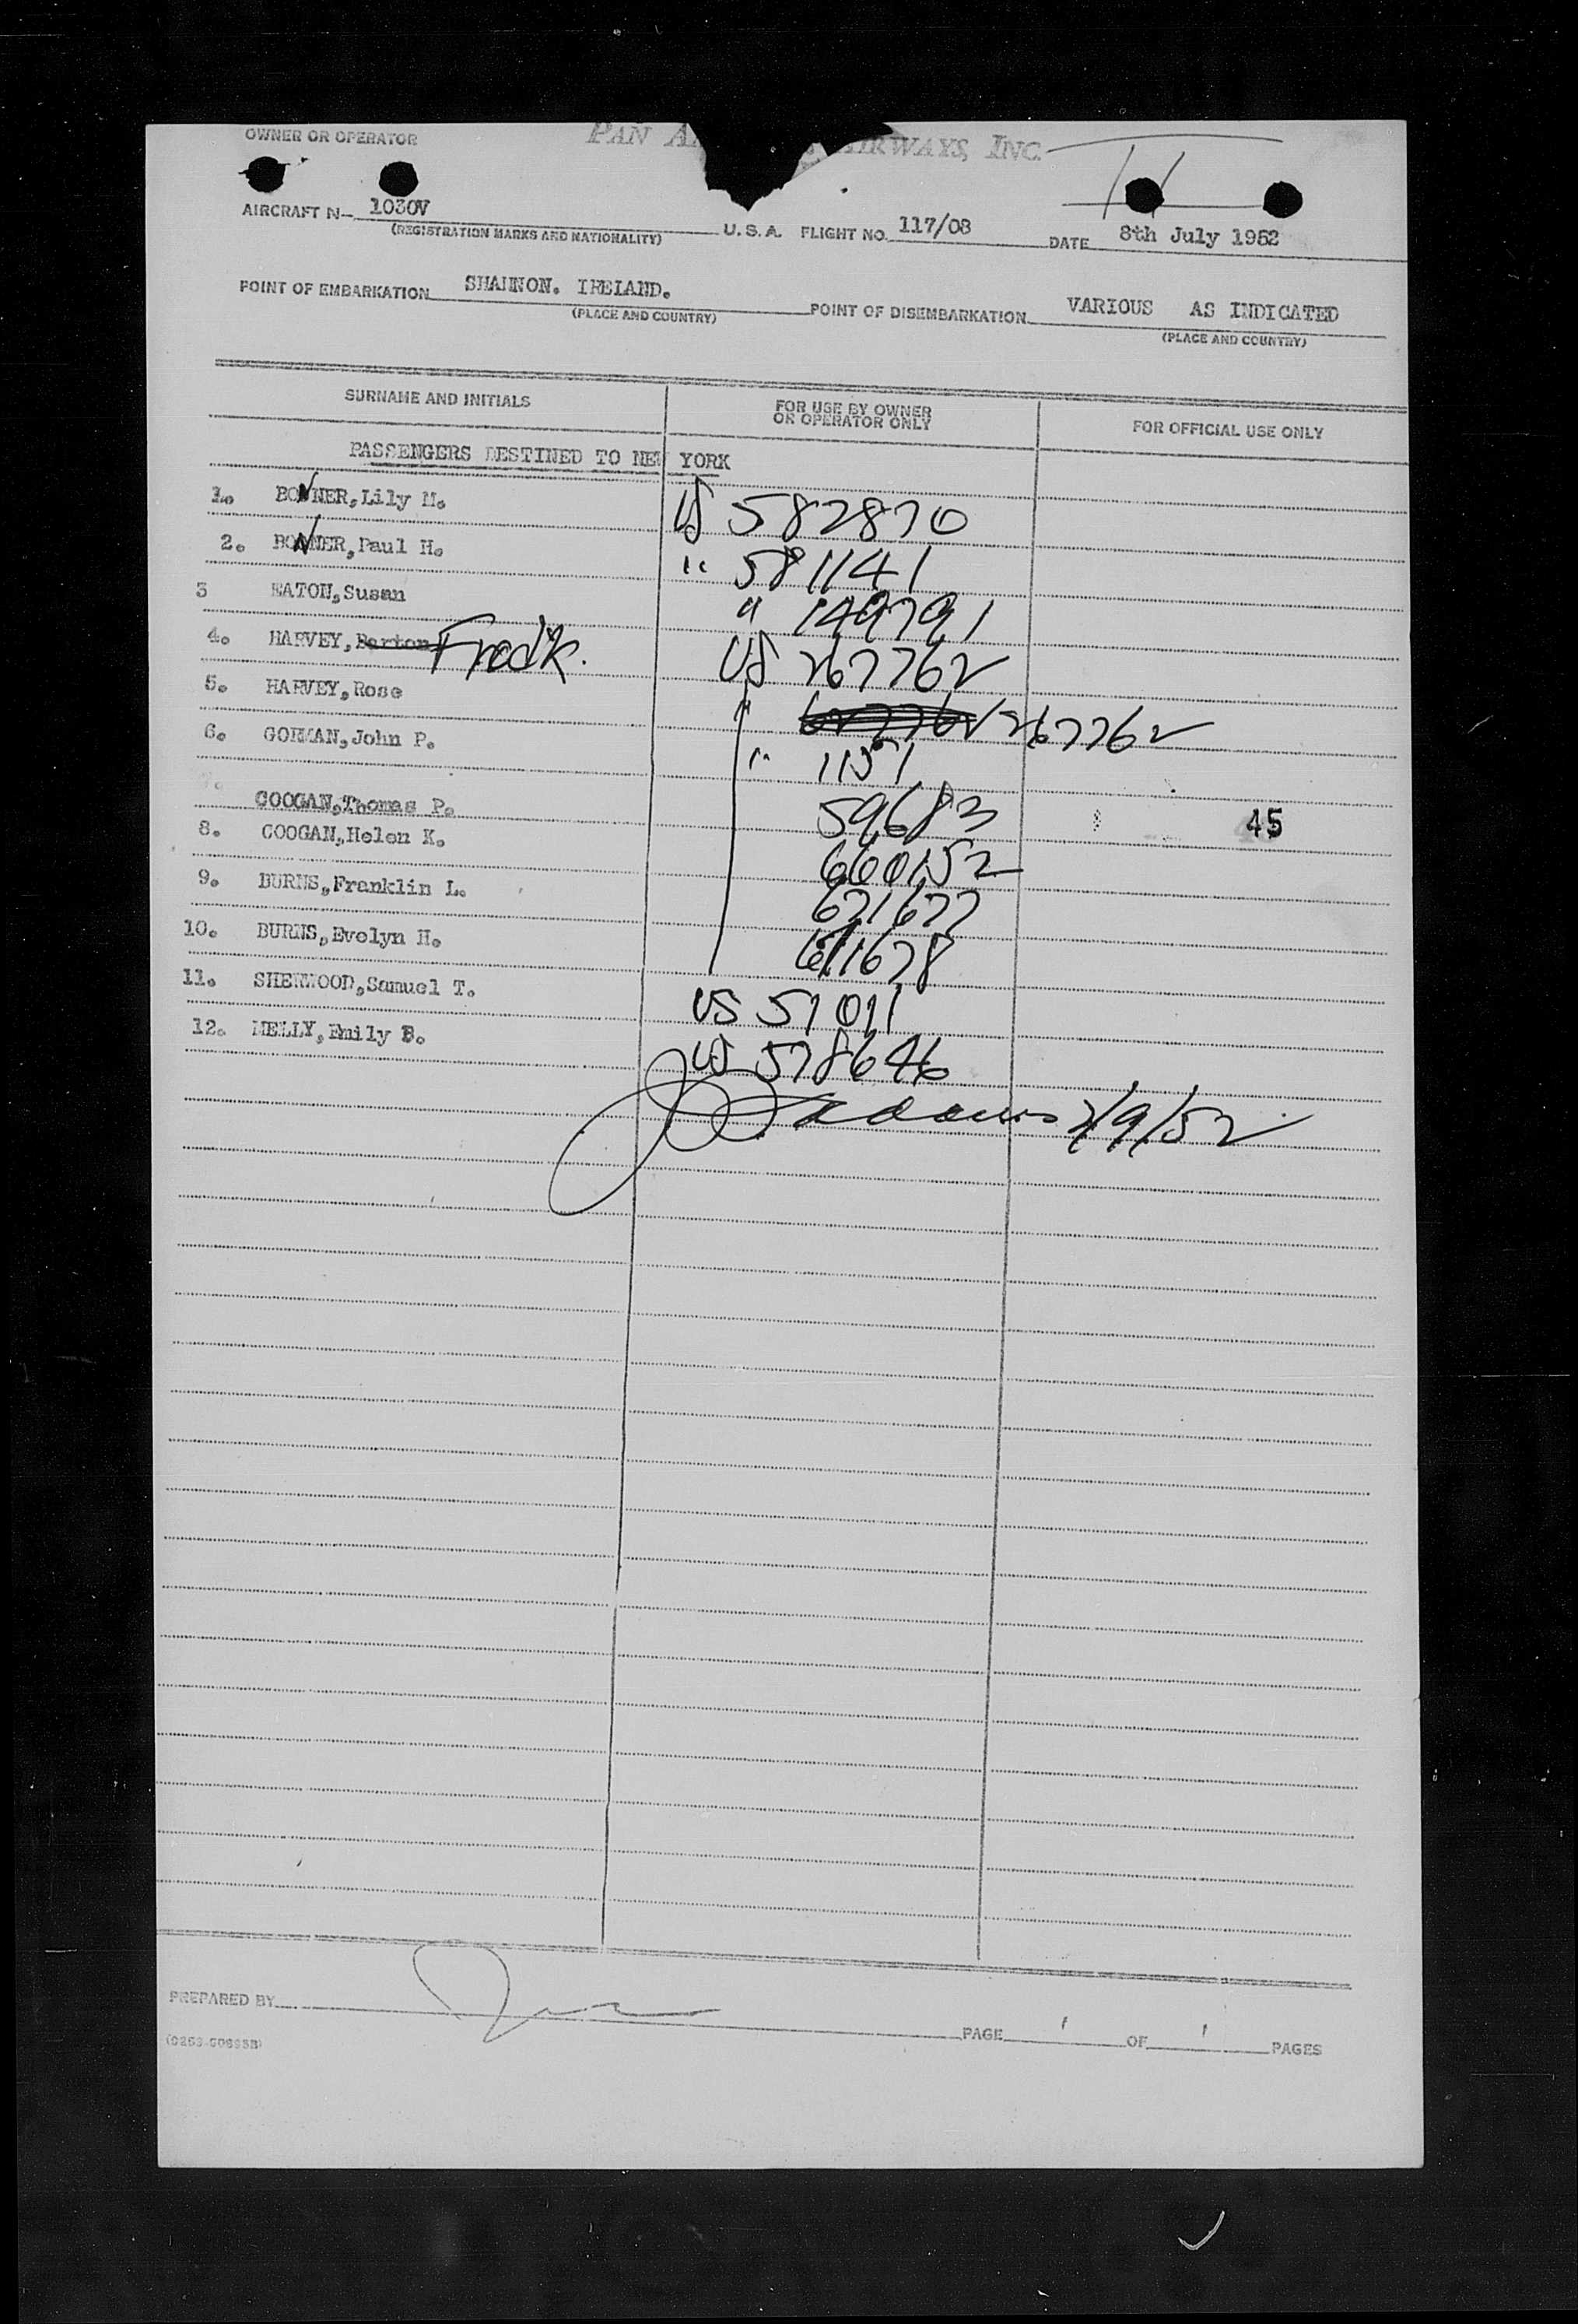 OWNER OR OPERATOR PAN A AIRWAYS, INC.
AIRCRAFT N- 1030V U.S.A. FLIGHT NO. 117/08 DATE 8th July 1952
(REGISTRATION MARKS AND NATIONALITY)
POINT OF EMBARKATION SHANNON. IRELAND. POINT OF DISEMBARKATION VARIOUS AS INDICATED
(PLACE AND COUNTRY) (PLACE AND COUNTRY)
SURNAME AND INITIALS FOR USE BY OWNER OR OPERATOR ONLY FOR OFFICIAL USE ONLY
PASSENGERS DESTINED TO NEW YORK
1. BONNER, Lily M. US 582870
2. BONNER, Paul H. " 581141
3 EATON, Susan " 149791
4. HARVEY, Barton Fredk. US 267762
5. HARVEY, Rose " 267762
6. GORMAN, John P. " 1151
COOGAN, Thomas P. 59683 45
8. COOGAN, Helen K. 660152
9. BURNS, Franklin L. 671677
10. BURNS, Evelyn H. 671678
11. SHERWOOD, Samuel T. US 51011
12. MELLY, Emily B. US 578646
7/9/52
PREPARED BY
PAGE 1 OF 1 PAGES